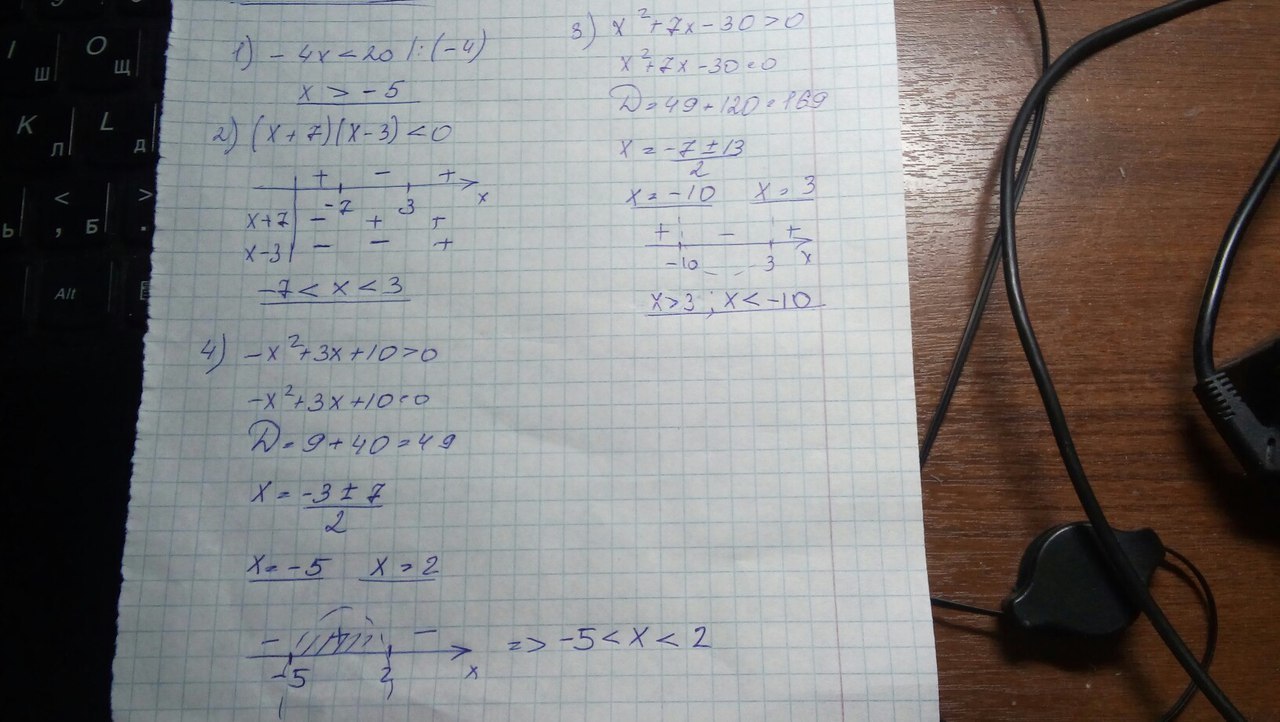 1) - 4x < 20 |:(-4)
x > -5
2) (x+7)(x-3) < 0
+ - +
-7 3 x
x+7 - + +
x-3 - - +
-7 < x < 3
3) x²+7x-30>0
x²+7x-30=0
D=49+120=169
x = -7 ± 13
2
x = -10 x = 3
+ - +
-10 3 x
x>3 ; x<-10
4) -x²+3x+10>0
-x²+3x+10=0
D=9+40=49
x = -3 ± 7
2
x=-5 x = 2
- + -
-5 2 x
=> -5 < x < 2
Ш Щ
O
K L
Л Д
< >
Ь , Б .
Alt